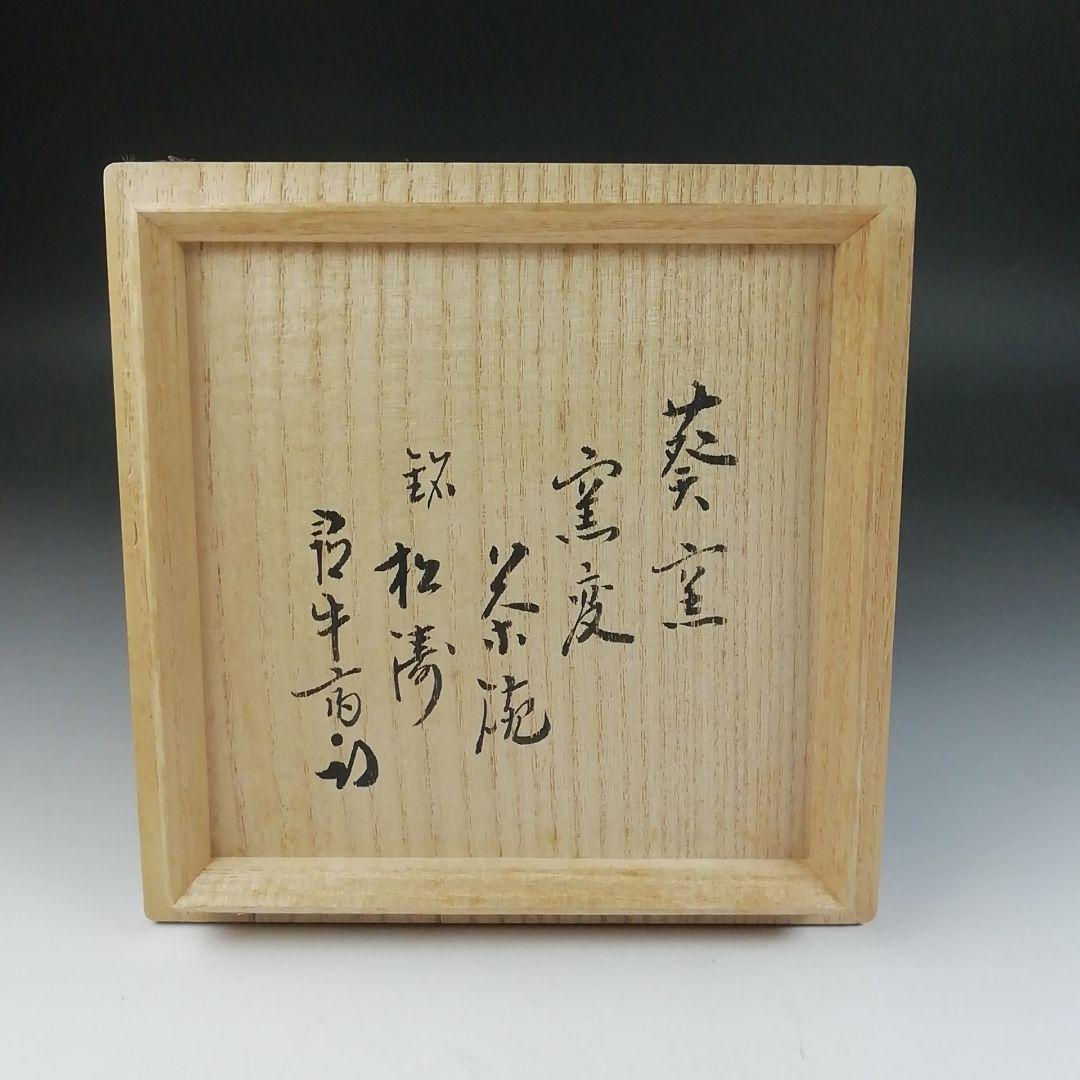 葵窯
窯変
茶碗
銘 松濤